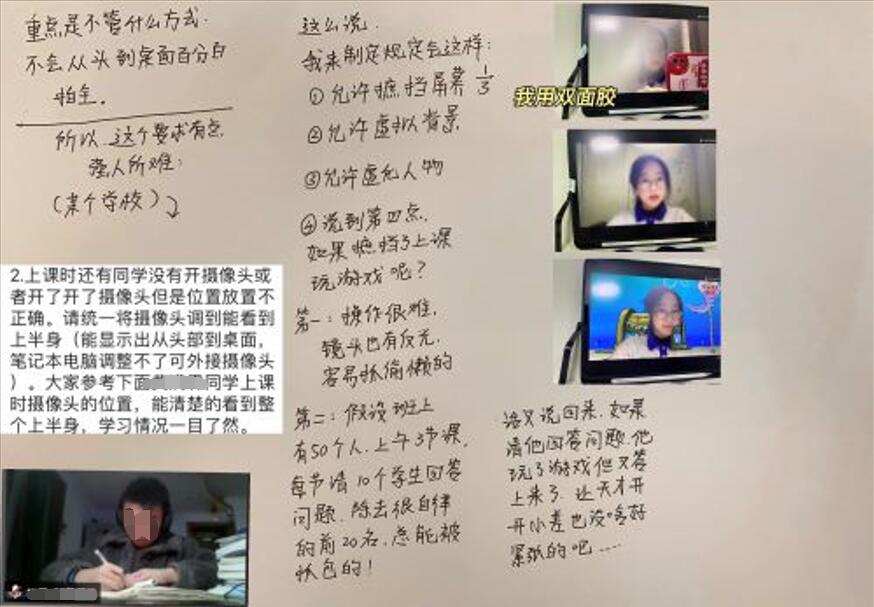 重点是不管什么方式.
不会从头到桌面百分白
拍全。
所以.这个要求有点
强人所难:
(某个学校)
2.上课时还有同学没有开摄像头或
者开了开了摄像头但是位置放置不
正确。请统一将摄像头调到能看到
上半身（能显示出从头部到桌面,
笔记本电脑调整不了可外接摄像头
）。大家参考下面同学上课
时摄像头的位置，能清楚的看到整
个上半身，学习情况一目了然。
这么说.
我来制定规定会这样:
①允许遮挡屏幕 1/3
②允许虚拟背景
③允许虚化人物
④说到第四点.
如果遮挡了上课
玩游戏呢?
第一:操作很难,
镜头也有反光.
容易抓偷懒的
第二:假设班上
有50个人.上午3节课,
每节请10个学生回答
问题.除去很自律
的前20名.总能被
抓包的!
我用双面胶
话又说回来.如果
请他回答问题.他
玩了游戏但又答
上来了.让天才开
开小差也没啥好
紧张的吧……